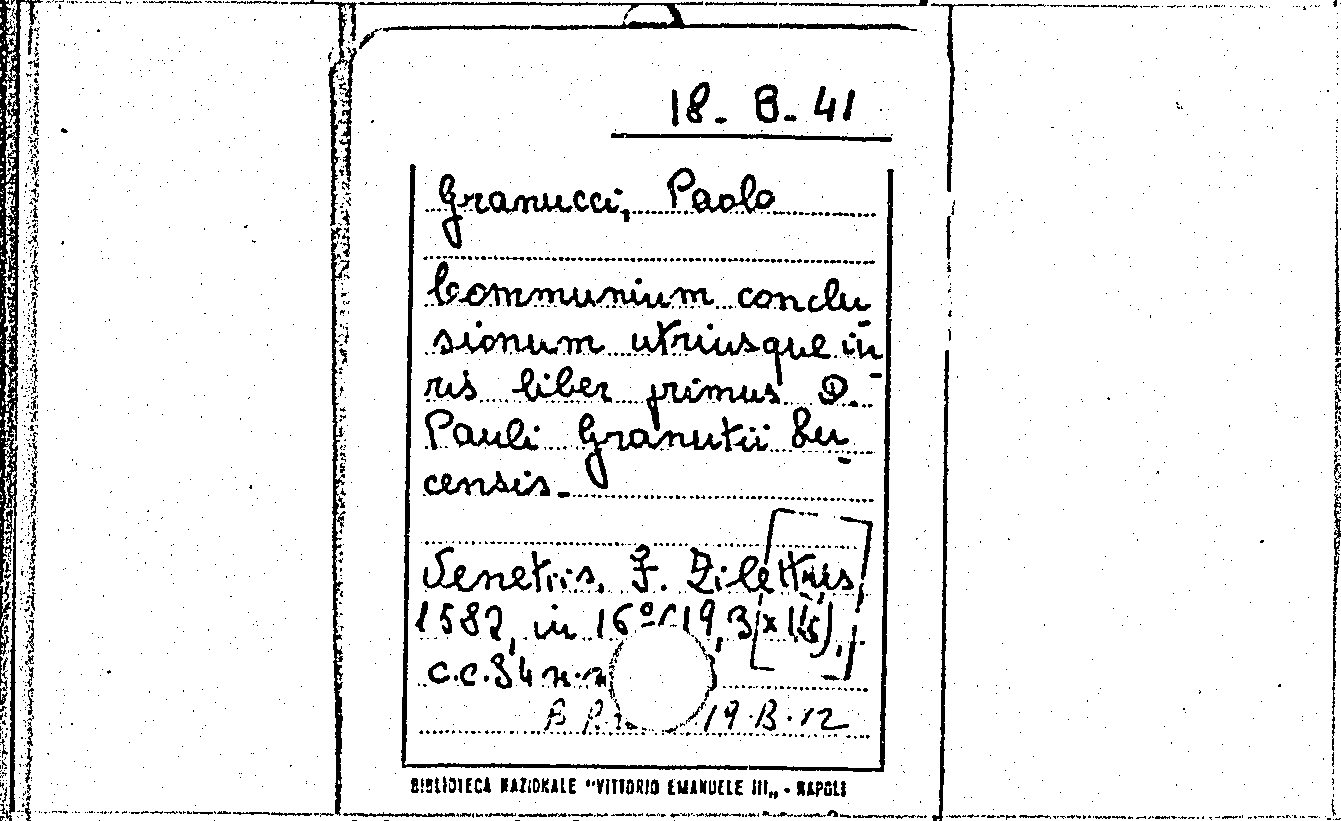 18. B. 41
Granucci, Paolo
Communium conclu
sionum utriusque iu
ris liber primus D.
Pauli Granutii Lu
censis.
Venetiis, F. Zilettus,
1582, in 16º (19,3 x 15),
c.c. 84 n.n
19.B.12
BIBLIOTECA NAZIONALE "VITTORIO EMANUELE III" - NAPOLI